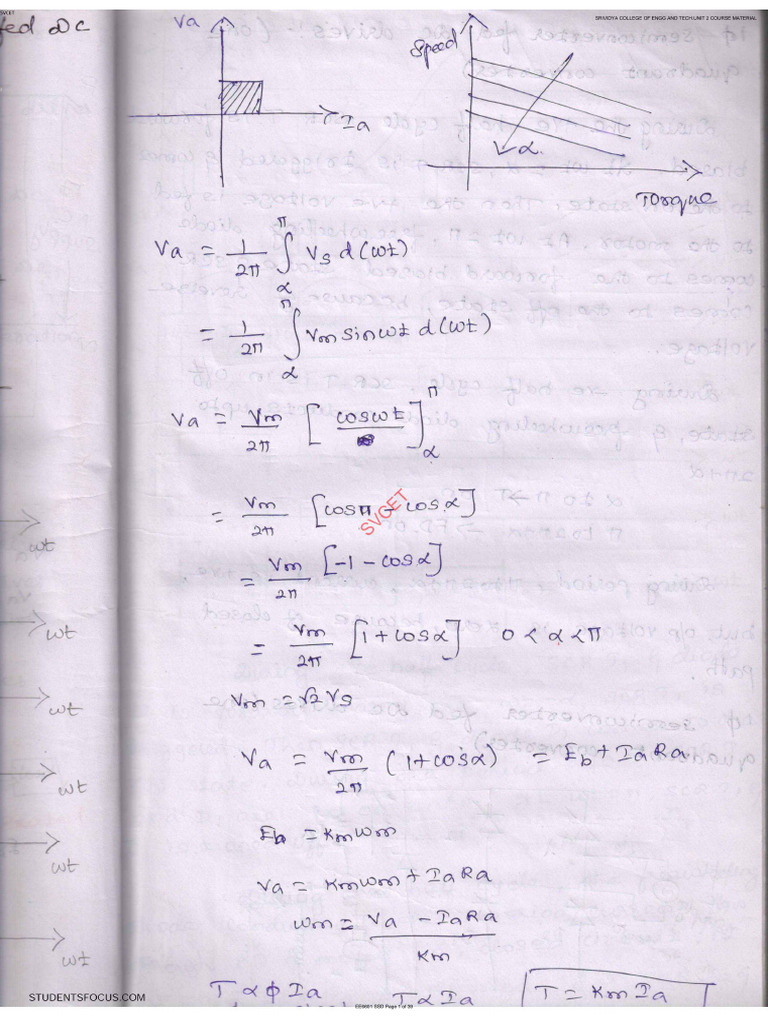 SVCET
SRIVIDYA COLLEGE OF ENGG AND TECH UNIT 2 COURSE MATERIAL
fed DC
Va
Ia
Speed
α
Torque
Va = 1/2π ∫α^π Vs d(ωt)
= 1/2π ∫α^π Vm sinωt d(ωt)
Va = Vm/2π [cosωt]α^π
= Vm/2π [cosπ - cosα]
SVCET
= Vm/2π [-1 - cosα]
= Vm/2π [1 + cosα] 0 < α < π
ωt
ωt
ωt
ωt
ωt
ωt
Vm = √2 Vs
Va = Vm/2π (1 + cosα) = Eb + IaRa
Eb = Kmωm
Va = Kmωm + IaRa
ωm = Va - IaRa / Km
T α ϕ Ia T α Ia T = Km Ia
STUDENTSFOCUS.COM
EE6601 SSD Page 1 of 39